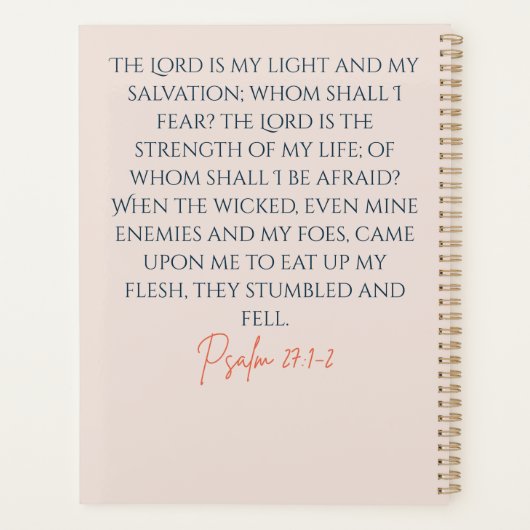 The Lord is my light and my
salvation; whom shall I
fear? the Lord is the
strength of my life; of
whom shall I be afraid?
When the wicked, even mine
enemies and my foes, came
upon me to eat up my
flesh, they stumbled and
fell.
Psalm 27:1-2